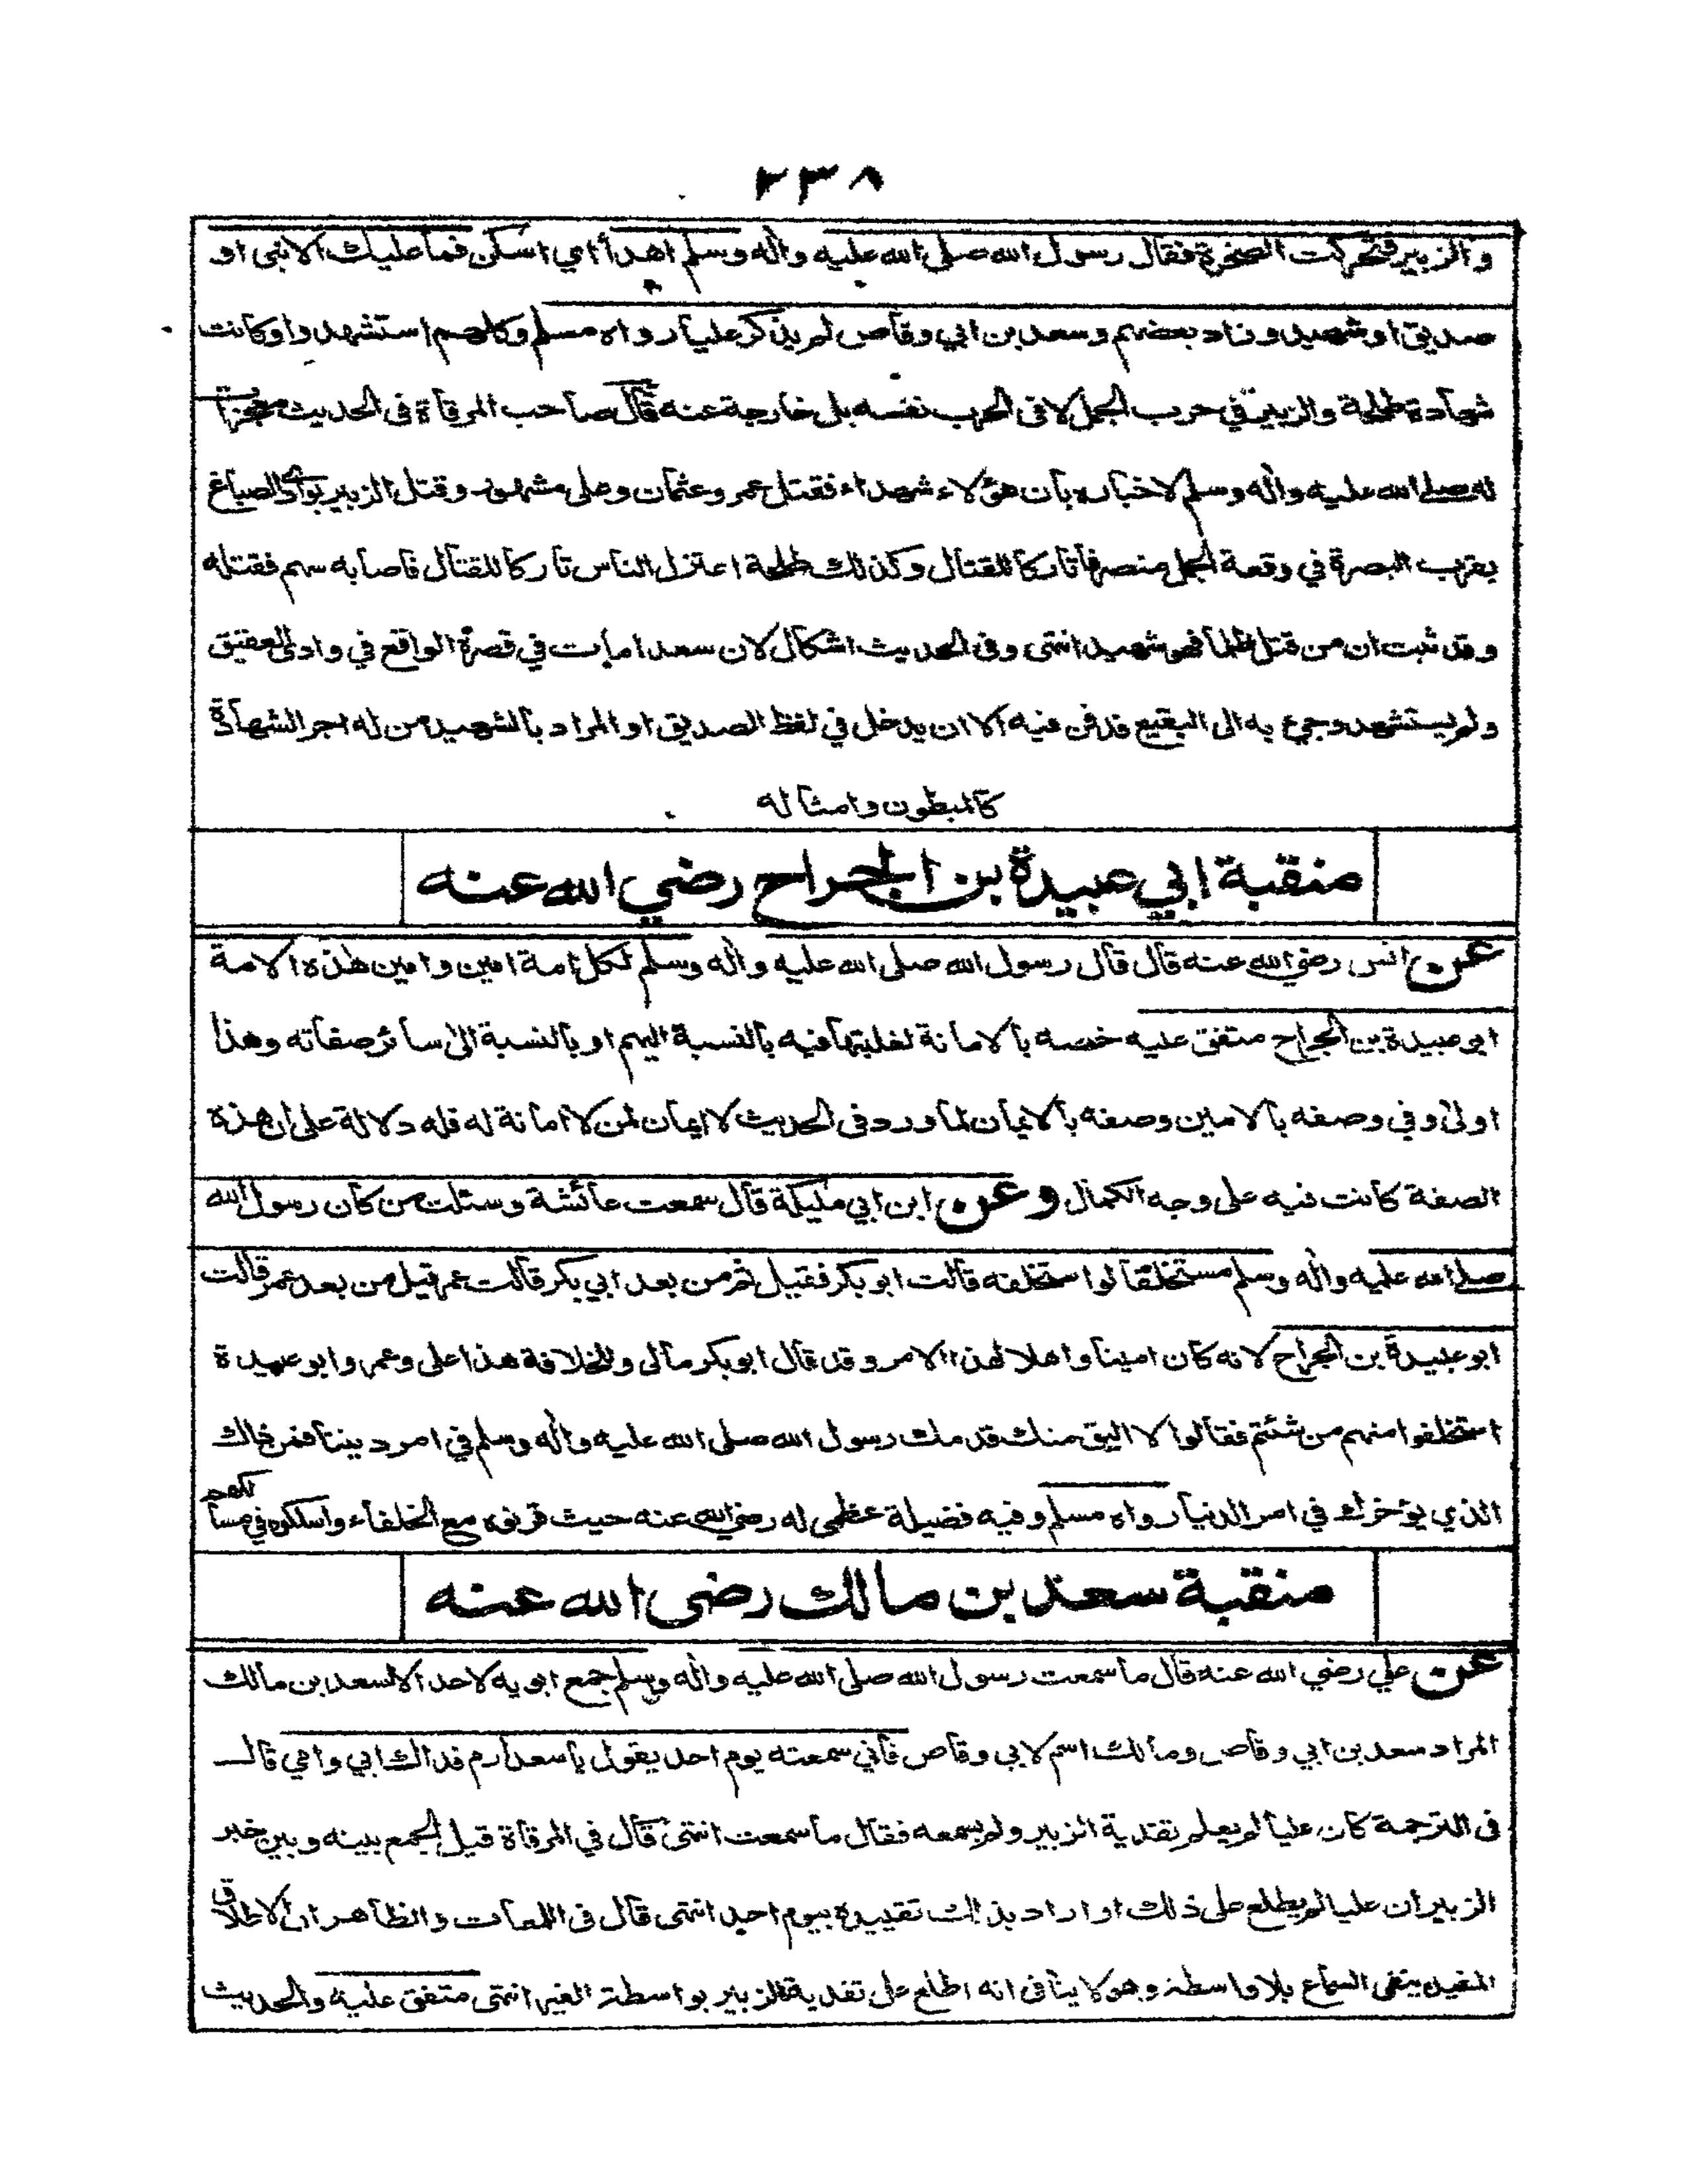 ٢٣٨
والزبير فتحركت الصخرة فقال رسول الله صلى الله عليه واله وسلم اهدأ اي اسكن فما عليك الا نبى او
صديق او شهيد وزاد بعضهم وسعد بن ابي وقاص لم يذكر عليا رواه مسلم وكلهم استشهدوا وكانت
شهادة طلحة والزبير في حرب الجمل لا فى الحرب نفسه بل خارجة عنه قال صاحب المرقاة فى الحديث معجزات
له صلى الله عليه واله وسلم لاخباره بان هؤلاء شهداء فقتل عمر وعثمان وعلى مشهور وقتل الزبير بوادى الصباغ
بقرب البصرة في وقعة الجمل منصرفا تاركا للقتال وكذلك طلحة اعتزل الناس تاركا للقتال فاصابه سهم فقتله
وقد ثبت ان من قتل ظلما فهو شهيد انتهى وفى الحديث اشكال لان سعدا مات في قصره الواقع في وادى العقيق
ولم يستشهد وجيء به الى البقيع فدفن فيه الا ان يدخل في لفظ الصديق او المراد بالشهيد من له اجر الشهادة
كالمبطون وامثاله
منقبة ابي عبيدة بن الجراح رضي الله عنه
عن انس رضي الله عنه قال قال رسول الله صلى الله عليه واله وسلم لكل امة امين وامين هذه الامة
ابو عبيدة بن الجراح متفق عليه خصه بالامانة لغلبتها فيه بالنسبة اليهم او بالنسبة الى سائر صفاته وهذا
اولى وفي وصفه بالامين وصفه بالايمان لما ورد فى الحديث لا ايمان لمن لا امانة له فله دلالة على ان هذه
الصفة كانت فيه على وجه الكمال وعن ابن ابي مليكة قال سمعت عائشة وسئلت من كان رسول الله
صلى الله عليه واله وسلم مستخلفا لو استخلفه قالت ابو بكر فقيل ثم من بعد ابي بكر قالت عمر قيل من بعد عمر قالت
ابو عبيدة بن الجراح لانه كان امينا واهلا لهذا الامر وقد قال ابو بكر مالى وللخلافة هذا على وعمر وابو عبيدة
استخلفوا منهم من شئتم فقالوا لا اليق منك قدمك رسول الله صلى الله عليه واله وسلم في امر ديننا فمن ذاك
الذي يؤخرك في امر الدنيا رواه مسلم وفيه فضيلة عظمى له رضي الله عنه حيث قرنوه مع الخلفاء واسلكوه في مسا
لكهم
منقبة سعد بن مالك رضى الله عنه
عن علي رضي الله عنه قال ما سمعت رسول الله صلى الله عليه واله وسلم جمع ابويه لاحد الا لسعد بن مالك
المراد سعد بن ابي وقاص ومالك اسم لابي وقاص فاني سمعته يوم احد يقول يا سعد ارم فداك ابي وامي قال
فى الترجمة كان عليا لم يعلم تفدية الزبير ولم يسمعه فقال ما سمعت انتهى قال في المرقاة قيل الجمع بينه وبين خبر
الزبير ان عليا لم يطلع على ذلك او اراد بذلك تقييده بيوم احد انتهى قال فى اللمعات والظاهر ان الاطلاق
المقيد ينفى السماع بلا واسطة وهو لا ينافى انه اطلع على تفدية الزبير بواسطة الغير انتهى متفق عليه والحديث